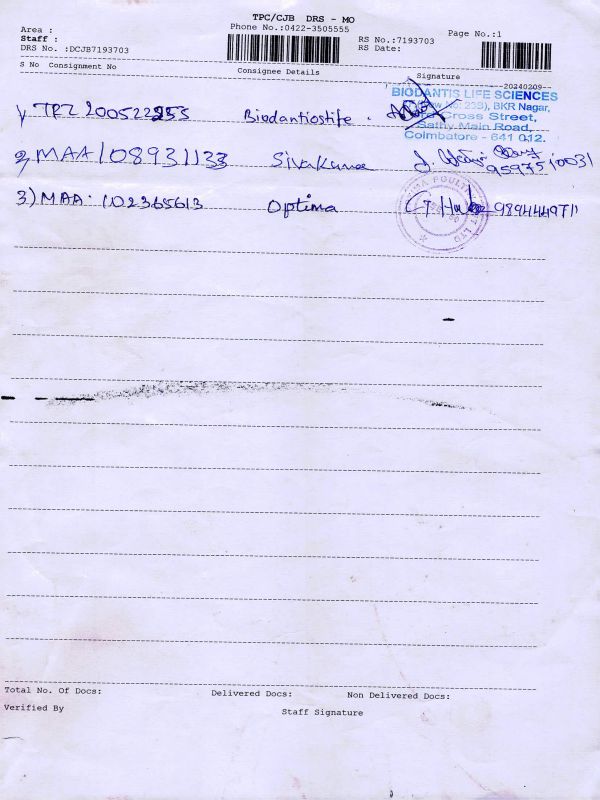 TPC/CJB DRS - MO
Area :
Phone No.:0422-3505555
Page No.:1
Staff :
RS No.:7193703
DRS No. :DCJB7193703
RS Date:
S No Consignment No
Consignee Details
Signature
20240209
BIODANTIS LIFE SCIENCES
BKR Nagar,
Cross Street,
Sathy Main Road,
Coimbatore - 641 012.
1) TPZ 200522255 Biodantiostife .
2) MAA108931133 Sivakumar
9597510031
3) MAA. 102365613 Optima 9894444971
Total No. Of Docs:
Delivered Docs:
Non Delivered Docs:
Verified By
Staff Signature